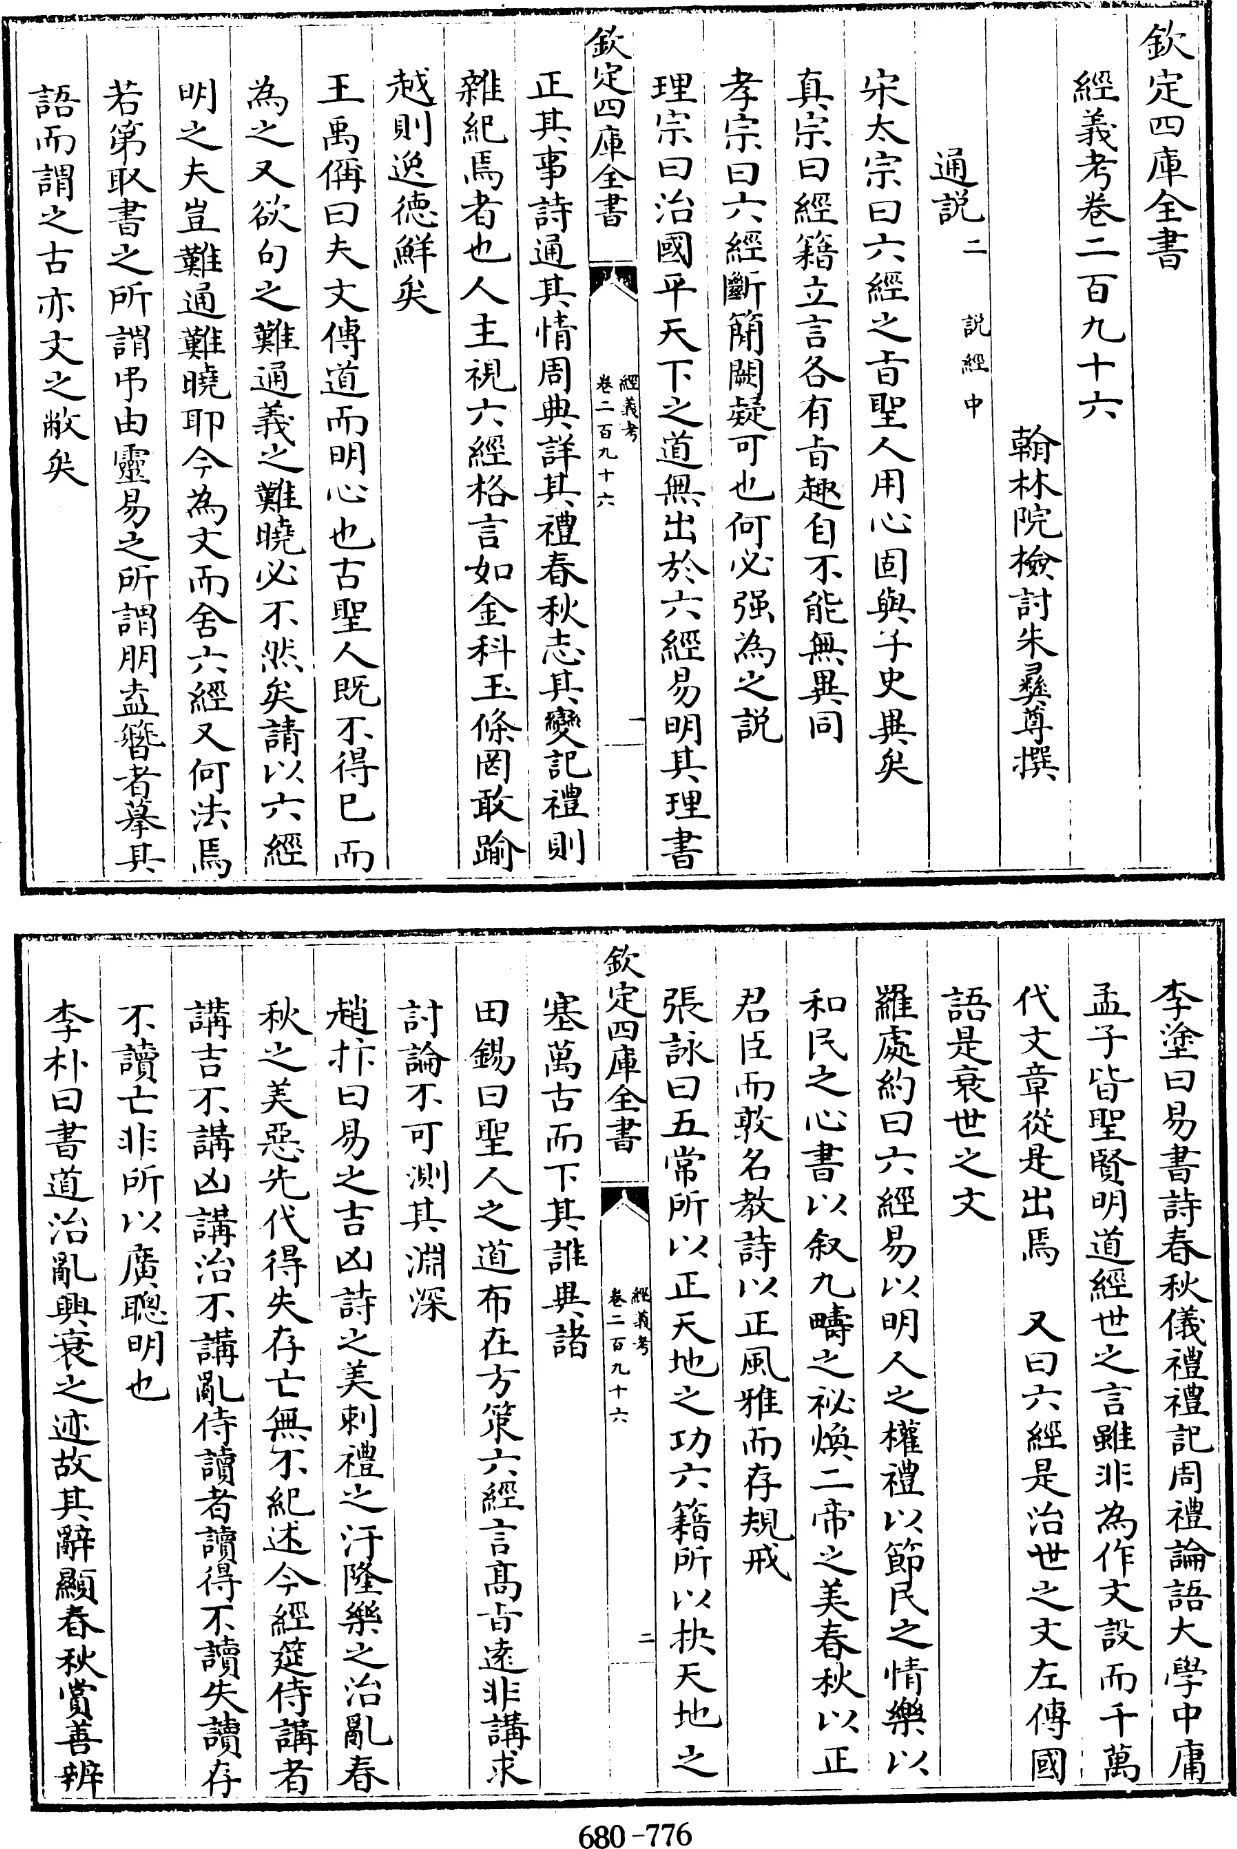 欽定四庫全書
經義考卷二百九十六
翰林院檢討朱彝尊撰
通說二 說經中
宋太宗曰六經之旨聖人用心固與子史異矣
真宗曰經籍立言各有旨趣自不能無異同
孝宗曰六經斷簡闕疑可也何必强為之說
理宗曰治國平天下之道無出於六經易明其理書
欽定四庫全書
經義考
卷二百九十六
一
正其事詩通其情周典詳其禮春秋志其變記禮則
雜紀焉者也人主視六經格言如金科玉條罔敢踰
越則逸德鮮矣
王禹偁曰夫文傳道而明心也古聖人既不得已而
為之又欲句之難通義之難曉必不然矣請以六經
明之夫豈難通難曉耶今為文而舍六經又何法焉
若第取書之所謂弔由靈易之所謂朋盍簪者摹其
語而謂之古亦文之敝矣
李塗曰易書詩春秋儀禮禮記周禮論語大學中庸
孟子皆聖賢明道經世之言雖非為作文設而千萬
代文章從是出焉 又曰六經是治世之文左傳國
語是衰世之文
羅處約曰六經易以明人之權禮以節民之情樂以
和民之心書以叙九疇之祕煥二帝之美春秋以正
君臣而敦名教詩以正風雅而存規戒
張詠曰五常所以正天地之功六籍所以抉天地之
欽定四庫全書
經義考
卷二百九十六
二
塞萬古而下其誰與諸
田錫曰聖人之道布在方策六經言髙旨逺非講求
討論不可測其淵深
趙抃曰易之吉凶詩之美刺禮之汙隆樂之治亂春
秋之美惡先代得失存亡無不紀述今經筵侍講者
講吉不講凶講治不講亂侍讀者讀得不讀失讀存
不讀亡非所以廣聰明也
李朴曰書道治亂興衰之迹故其辭顯春秋賞善辨
680-776